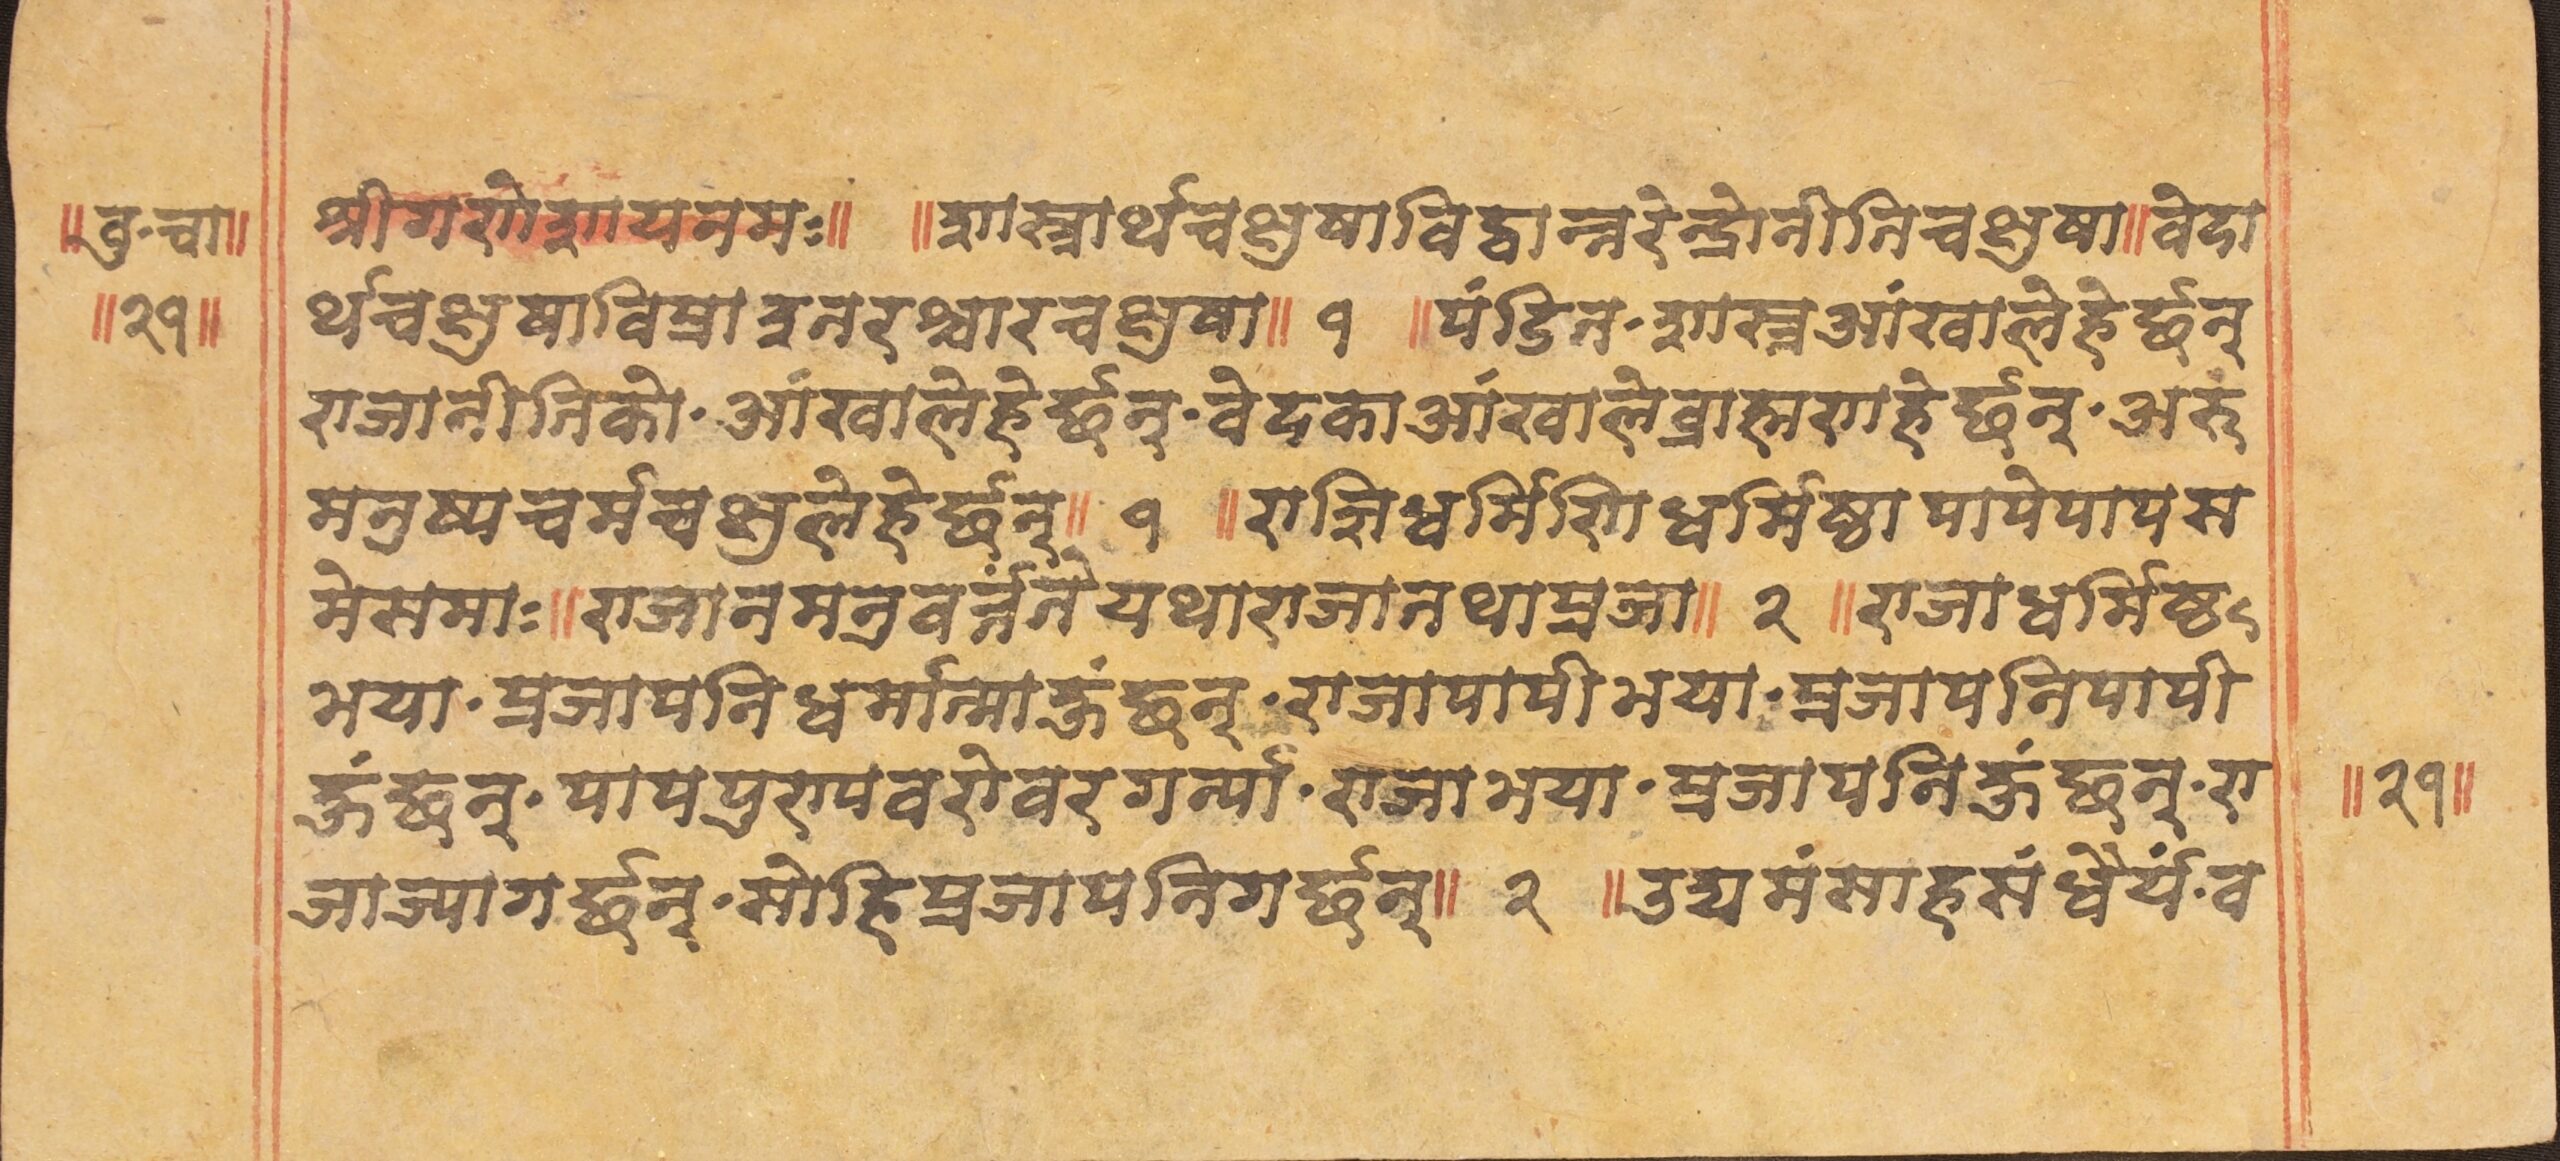 ॥वु·चा॥
॥२१॥
श्रीगणेशायनमः॥ ॥शास्त्रार्थचक्षुषाविद्वान्नरेन्द्रोनीतिचक्षुषा॥वेदा
र्थचक्षुषाविप्राइतरश्चारचक्षुषा॥ १ ॥पंडित·शास्त्रआंखालेहेर्छन्
राजानीतिको·आंखालेहेर्छन्·वेदकाआंखालेब्राह्मणहेर्छन्·अरु
मनुष्यचर्मचक्षुलेहेर्छन्॥ १ ॥राज्ञिधर्मिणिधर्मिष्ठापापेपापस
मेसमाः॥राजानमनुवर्त्तंतेयथाराजातथाप्रजा॥ २ ॥राजाधर्मिष्ठ
भया·प्रजापनिधर्मात्माहुंछन्·राजापापीभया·प्रजापनिपापी
हुंछन्·पापपुण्यवरोवरगर्न्या·राजाभया·प्रजापनिहुंछन्·रा
जाज्यागर्छन्·सोहिप्रजापनिगर्छन्॥ २ ॥उद्यमंसाहसंधैर्यं·व
॥२१॥